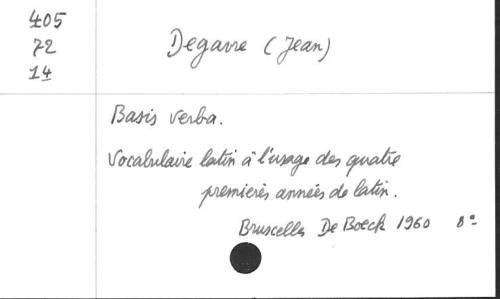 405
72
14
Degavre (Jean)
Basis verba.
Vocabulaire latin à l'usage des quatre
premières années de latin.
Bruxelles De Boeck 1960 8°